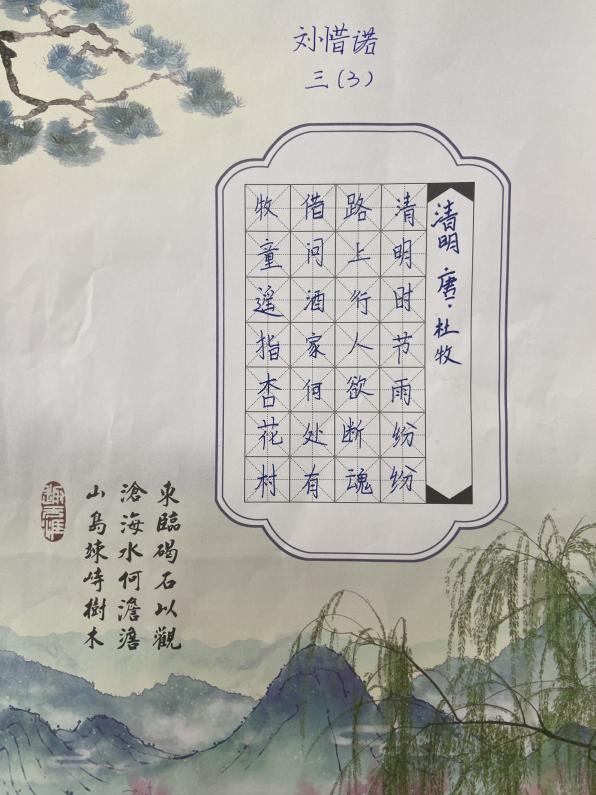 刘惜诺
三(3)
清明 唐·杜牧
清明时节雨纷纷
路上行人欲断魂
借问酒家何处有
牧童遥指杏花村
東臨碣石以觀
滄海水何澹澹
山島竦峙樹木